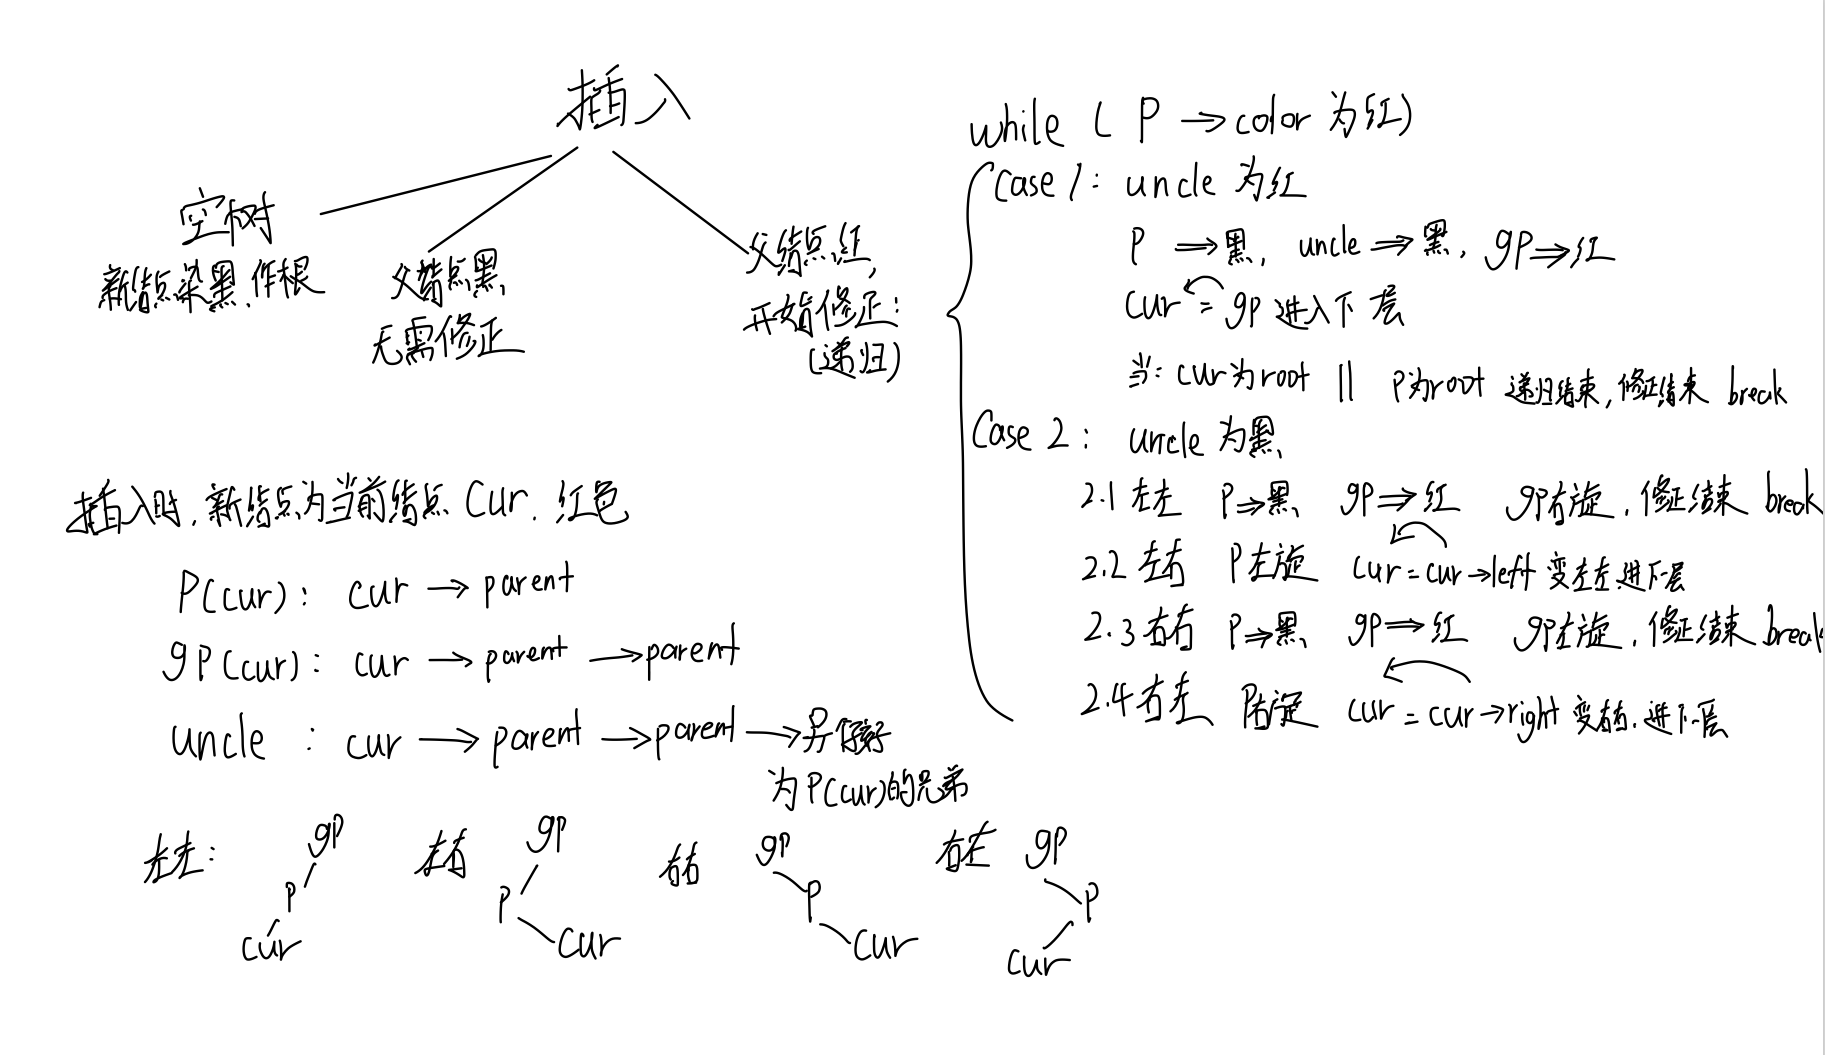 插入
空树
新结点染黑,作根
父结点黑
无需修正
父结点红,
开始修正:
(递归)
while ( P → color 为红)
Case 1: uncle 为红
P ⇒ 黑, uncle ⇒ 黑, gP ⇒ 红
cur = gp 进入下层
当: cur为root || P为root 递归结束,修正结束 break
Case 2: uncle 为黑
2.1 左左 P⇒黑 gp⇒红 gp右旋,修正结束 break
2.2 左右 P左旋 cur = cur→left 变左左,进下层
2.3 右右 P⇒黑 gp⇒红 gp左旋,修正结束 break
2.4 右左 P右旋 cur = cur→right 变右右,进下层
插入时,新结点为当前结点 Cur. 红色
P(cur): cur → parent
gP(cur): cur → parent → parent
uncle : cur → parent → parent →
为P(cur)的兄弟
左左:
gP
P
cur
左右
gP
P
cur
右右
gP
P
cur
右左
gP
P
cur